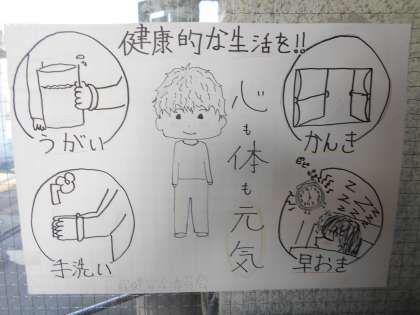 健康的な生活を!!
うがい
かんき
心も体も元気
手洗い
早おき
ZZZZZ